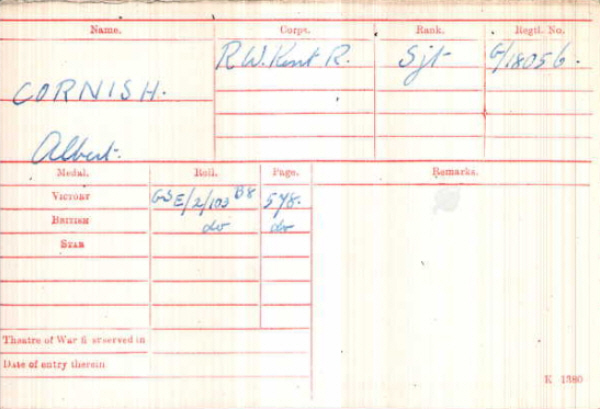 Name. Corps. Rank. Regtl. No.
R.W. Kent R. Sjt G/18056.
CORNISH.
Albert.
Medal. Roll. Page. Remarks.
VICTORY GSE/2/103 B8 578.
BRITISH do do
STAR
Theatre of War first served in
Date of entry therein
K 1380